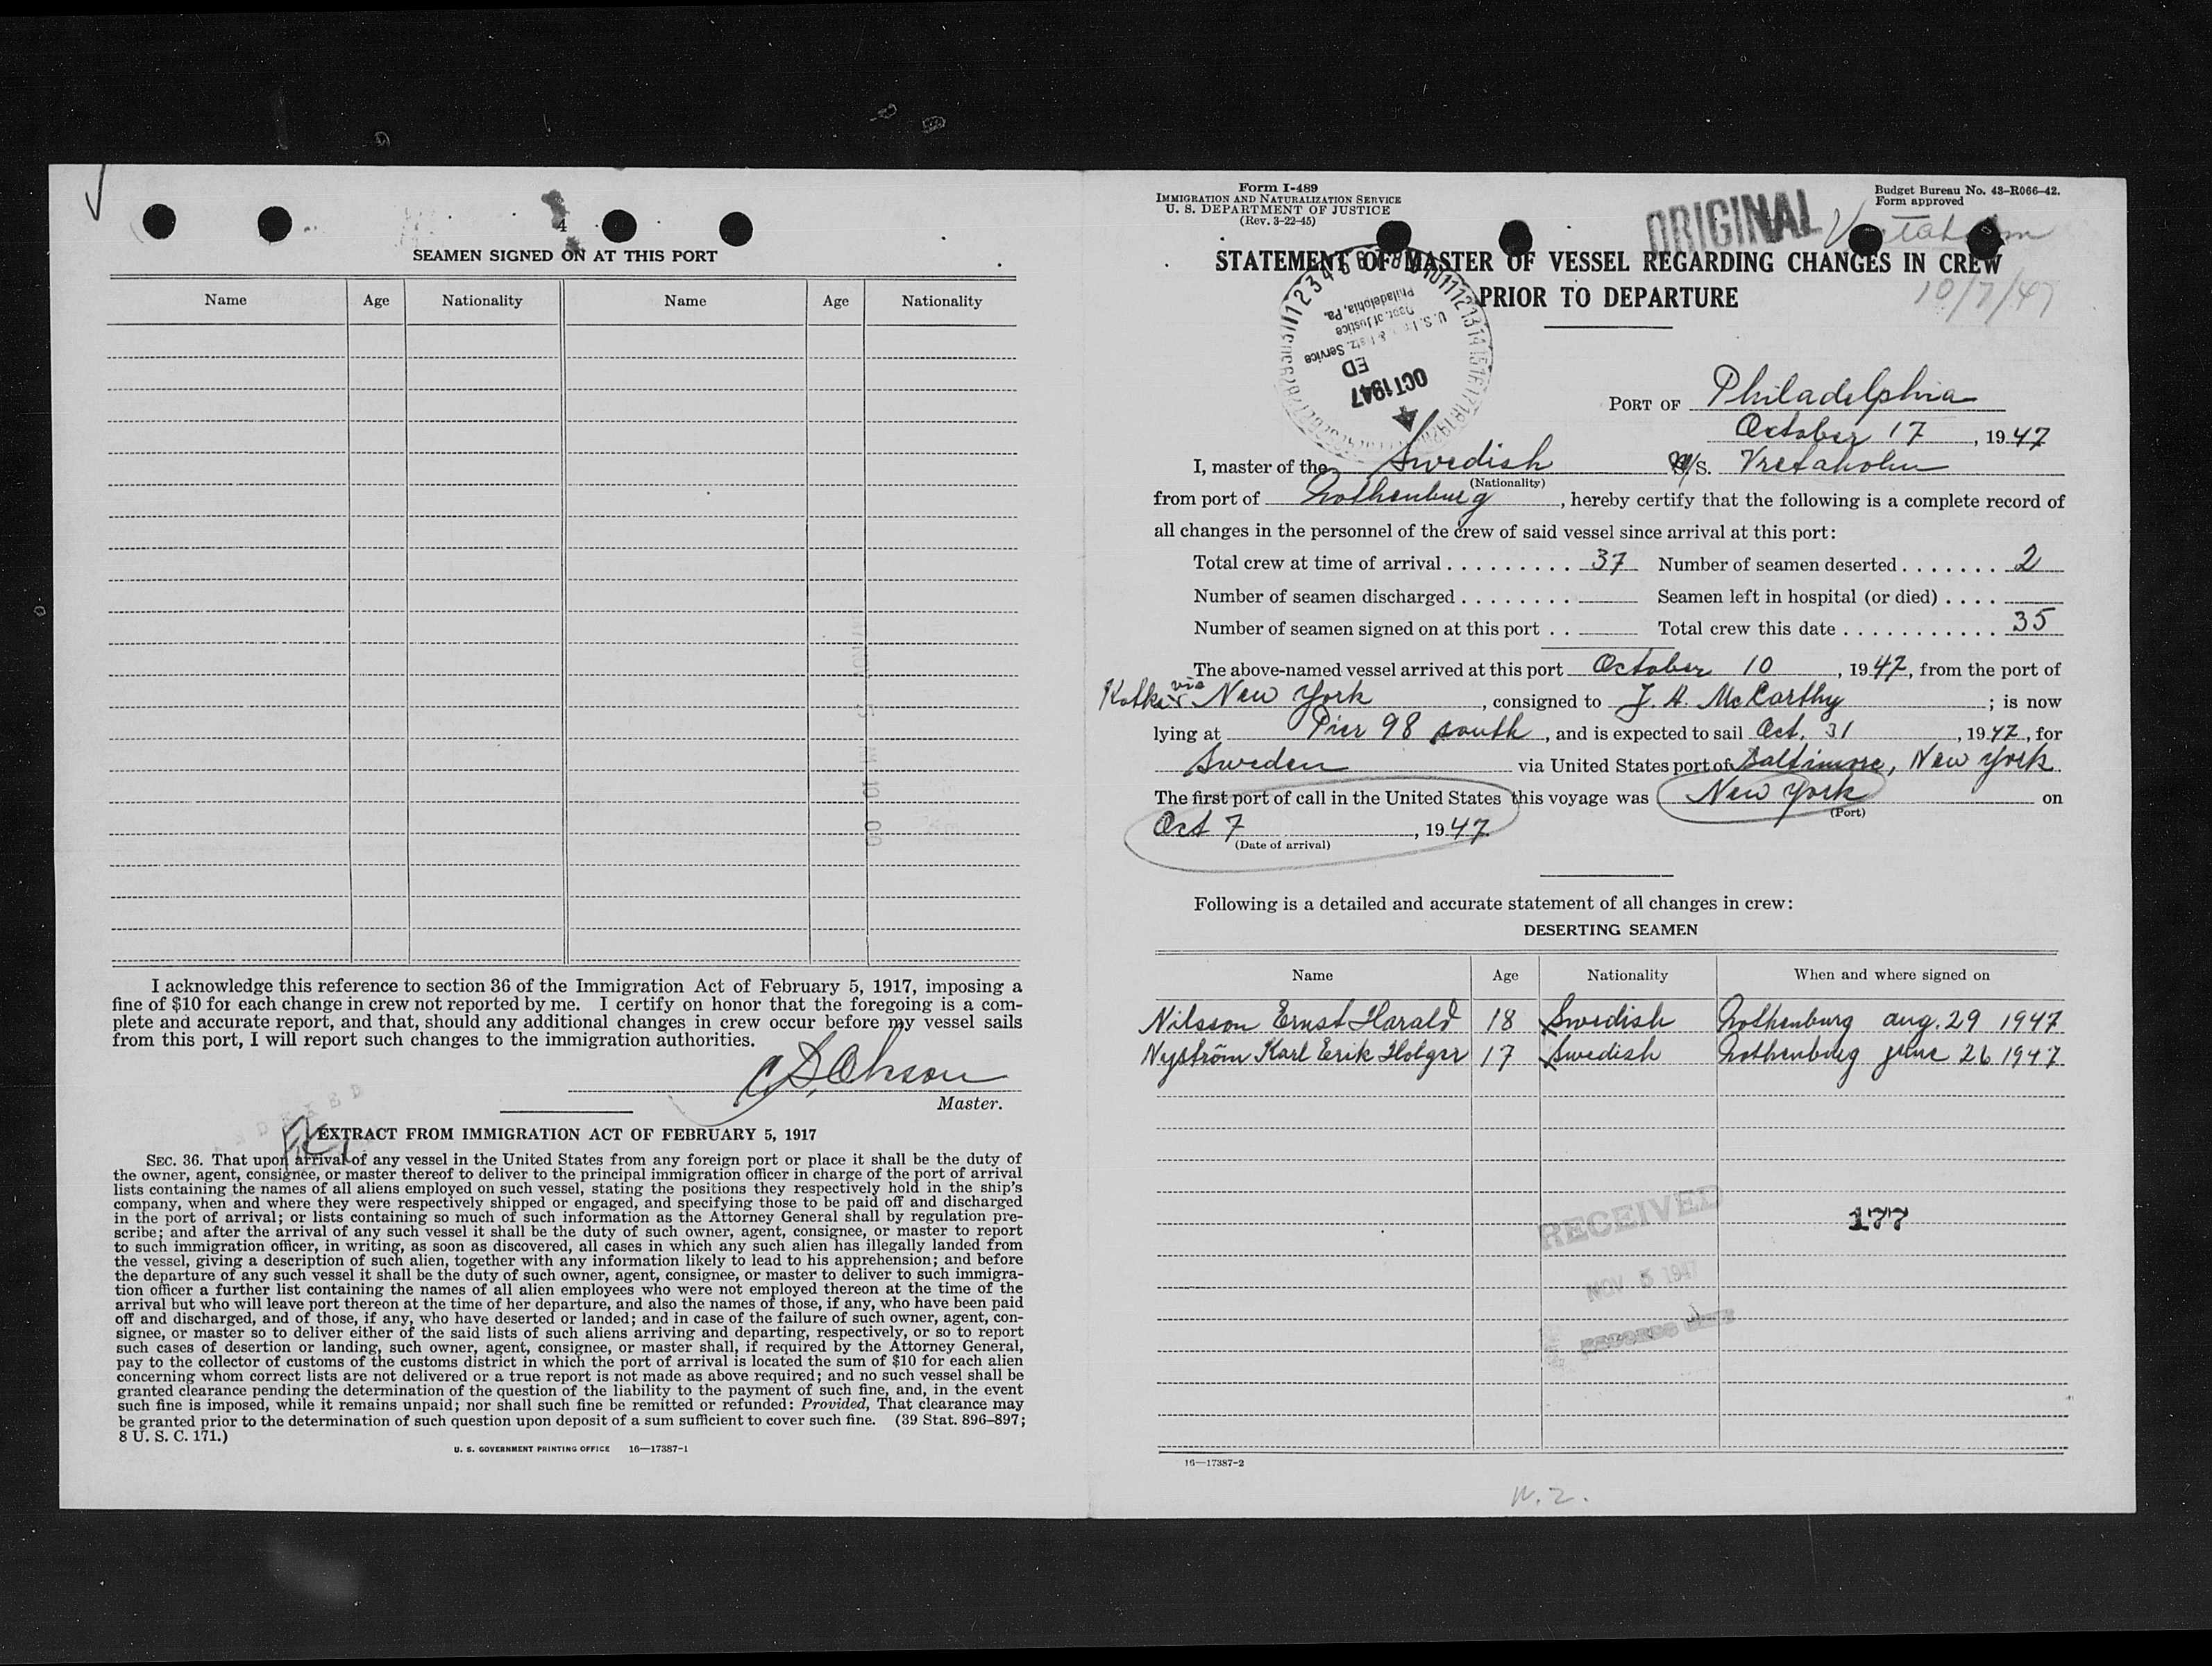 4
SEAMEN SIGNED ON AT THIS PORT
Name Age Nationality Name Age Nationality
I acknowledge this reference to section 36 of the Immigration Act of February 5, 1917, imposing a
fine of $10 for each change in crew not reported by me. I certify on honor that the foregoing is a com-
plete and accurate report, and that, should any additional changes in crew occur before my vessel sails
from this port, I will report such changes to the immigration authorities.
Master.
INDEXED
EXTRACT FROM IMMIGRATION ACT OF FEBRUARY 5, 1917
SEC. 36. That upon arrival of any vessel in the United States from any foreign port or place it shall be the duty of
the owner, agent, consignee, or master thereof to deliver to the principal immigration officer in charge of the port of arrival
lists containing the names of all aliens employed on such vessel, stating the positions they respectively hold in the ship's
company, when and where they were respectively shipped or engaged, and specifying those to be paid off and discharged
in the port of arrival; or lists containing so much of such information as the Attorney General shall by regulation pre-
scribe; and after the arrival of any such vessel it shall be the duty of such owner, agent, consignee, or master to report
to such immigration officer, in writing, as soon as discovered, all cases in which any such alien has illegally landed from
the vessel, giving a description of such alien, together with any information likely to lead to his apprehension; and before
the departure of any such vessel it shall be the duty of such owner, agent, consignee, or master to deliver to such immigra-
tion officer a further list containing the names of all alien employees who were not employed thereon at the time of the
arrival but who will leave port thereon at the time of her departure, and also the names of those, if any, who have been paid
off and discharged, and of those, if any, who have deserted or landed; and in case of the failure of such owner, agent, con-
signee, or master so to deliver either of the said lists of such aliens arriving and departing, respectively, or so to report
such cases of desertion or landing, such owner, agent, consignee, or master shall, if required by the Attorney General,
pay to the collector of customs of the customs district in which the port of arrival is located the sum of $10 for each alien
concerning whom correct lists are not delivered or a true report is not made as above required; and no such vessel shall be
granted clearance pending the determination of the question of the liability to the payment of such fine, and, in the event
such fine is imposed, while it remains unpaid; nor shall such fine be remitted or refunded: Provided, That clearance may
be granted prior to the determination of such question upon deposit of a sum sufficient to cover such fine. (39 Stat. 896–897;
8 U. S. C. 171.)
U. S. GOVERNMENT PRINTING OFFICE 16—17387-1
Form I-489
IMMIGRATION AND NATURALIZATION SERVICE
U. S. DEPARTMENT OF JUSTICE
(Rev. 3-22-45)
Budget Bureau No. 43–R066–42.
Form approved
ORIGINAL
STATEMENT OF MASTER OF VESSEL REGARDING CHANGES IN CREW
PRIOR TO DEPARTURE
10/7/47
Philadelphia, Pa.
Dept. of Justice
U. S. Imm. & Natz. Service
OCT 1947
PORT OF Philadelphia
October 17, 1947
I, master of the Swedish M/S. Vretaholm
(Nationality)
from port of Gothenburg, hereby certify that the following is a complete record of
all changes in the personnel of the crew of said vessel since arrival at this port:
Total crew at time of arrival . . . . . . . . . . 37 Number of seamen deserted . . . . . . . 2
Number of seamen discharged . . . . . . . . Seamen left in hospital (or died) . . . .
Number of seamen signed on at this port . . Total crew this date . . . . . . . . . . . . 35
The above-named vessel arrived at this port October 10, 1947, from the port of
Kotka via New York, consigned to J. H. McCarthy; is now
lying at Pier 98 south, and is expected to sail Oct. 31, 1947, for
Sweden via United States port of Baltimore, New York
The first port of call in the United States this voyage was New York on
(Port)
Oct 7, 1947
(Date of arrival)
Following is a detailed and accurate statement of all changes in crew:
DESERTING SEAMEN
Name Age Nationality When and where signed on
Nilsson Ernst Harald 18 Swedish Gothenburg aug. 29 1947
Nyström Karl Erik Holger 17 Swedish Gothenburg june 26 1947
RECEIVED
177
NOV 5 1947
RECORDS UNIT
16—17387-2